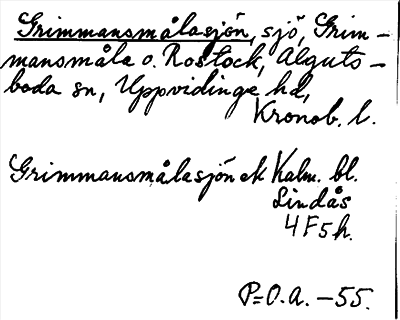 Grimmansmålasjön, sjö, Grim-
mansmåla o. Rostock, Alguts-
boda sn, Uppvidinge hd,
Kronob. l.
Grimmansmålasjön ek Kalm. bl.
Lindås
4F5h.
P=O.A. -55.